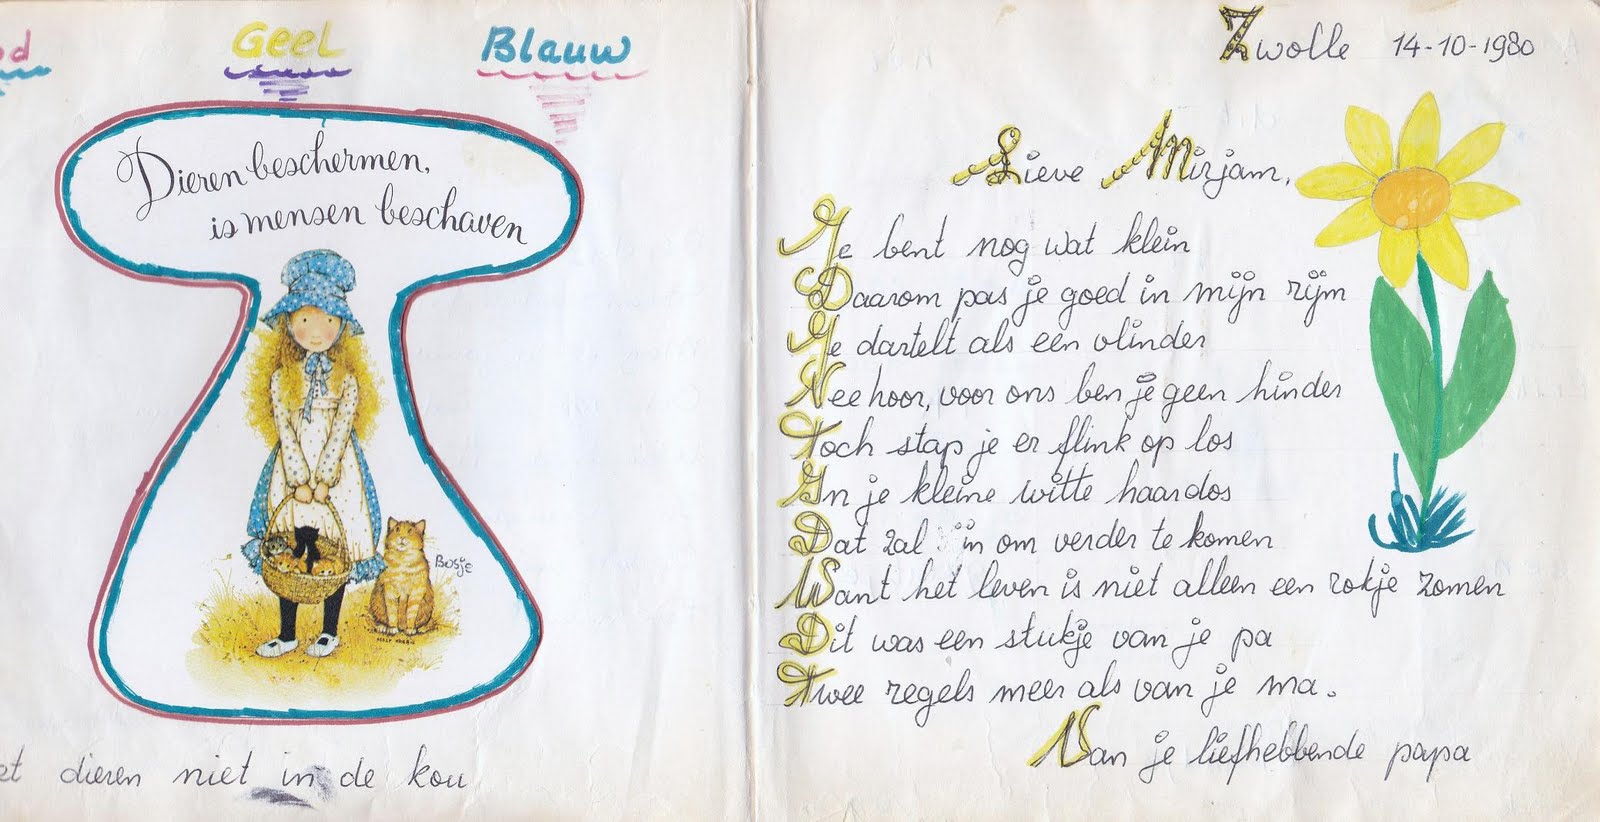 Geel
Blauw
Dieren beschermen,
is mensen beschaven
Bosje
dieren niet in de kou
Zwolle 14-10-1980
Lieve Mirjam,
Je bent nog wat klein
Daarom pas je goed in mijn rijm
Je dartelt als een vlinder
Nee hoor, voor ons ben je geen hinder
Toch stap je er flink op los
In je kleine witte haardos
Dat zal in om verder te komen
Want het leven is niet alleen een rokje zomen
Dit was een stukje van je pa
Twee regels meer als van je ma.
Van je liefhebbende papa